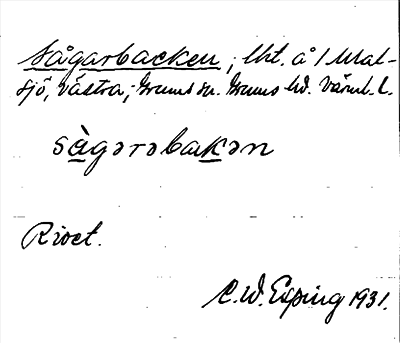 Sågarbacken, lht. å 1 Mal-
sjö, västra, Grums sn. Grums hd. Värml. l.
sàgərəbakən
Rivet.
C.W. Esping 1931.